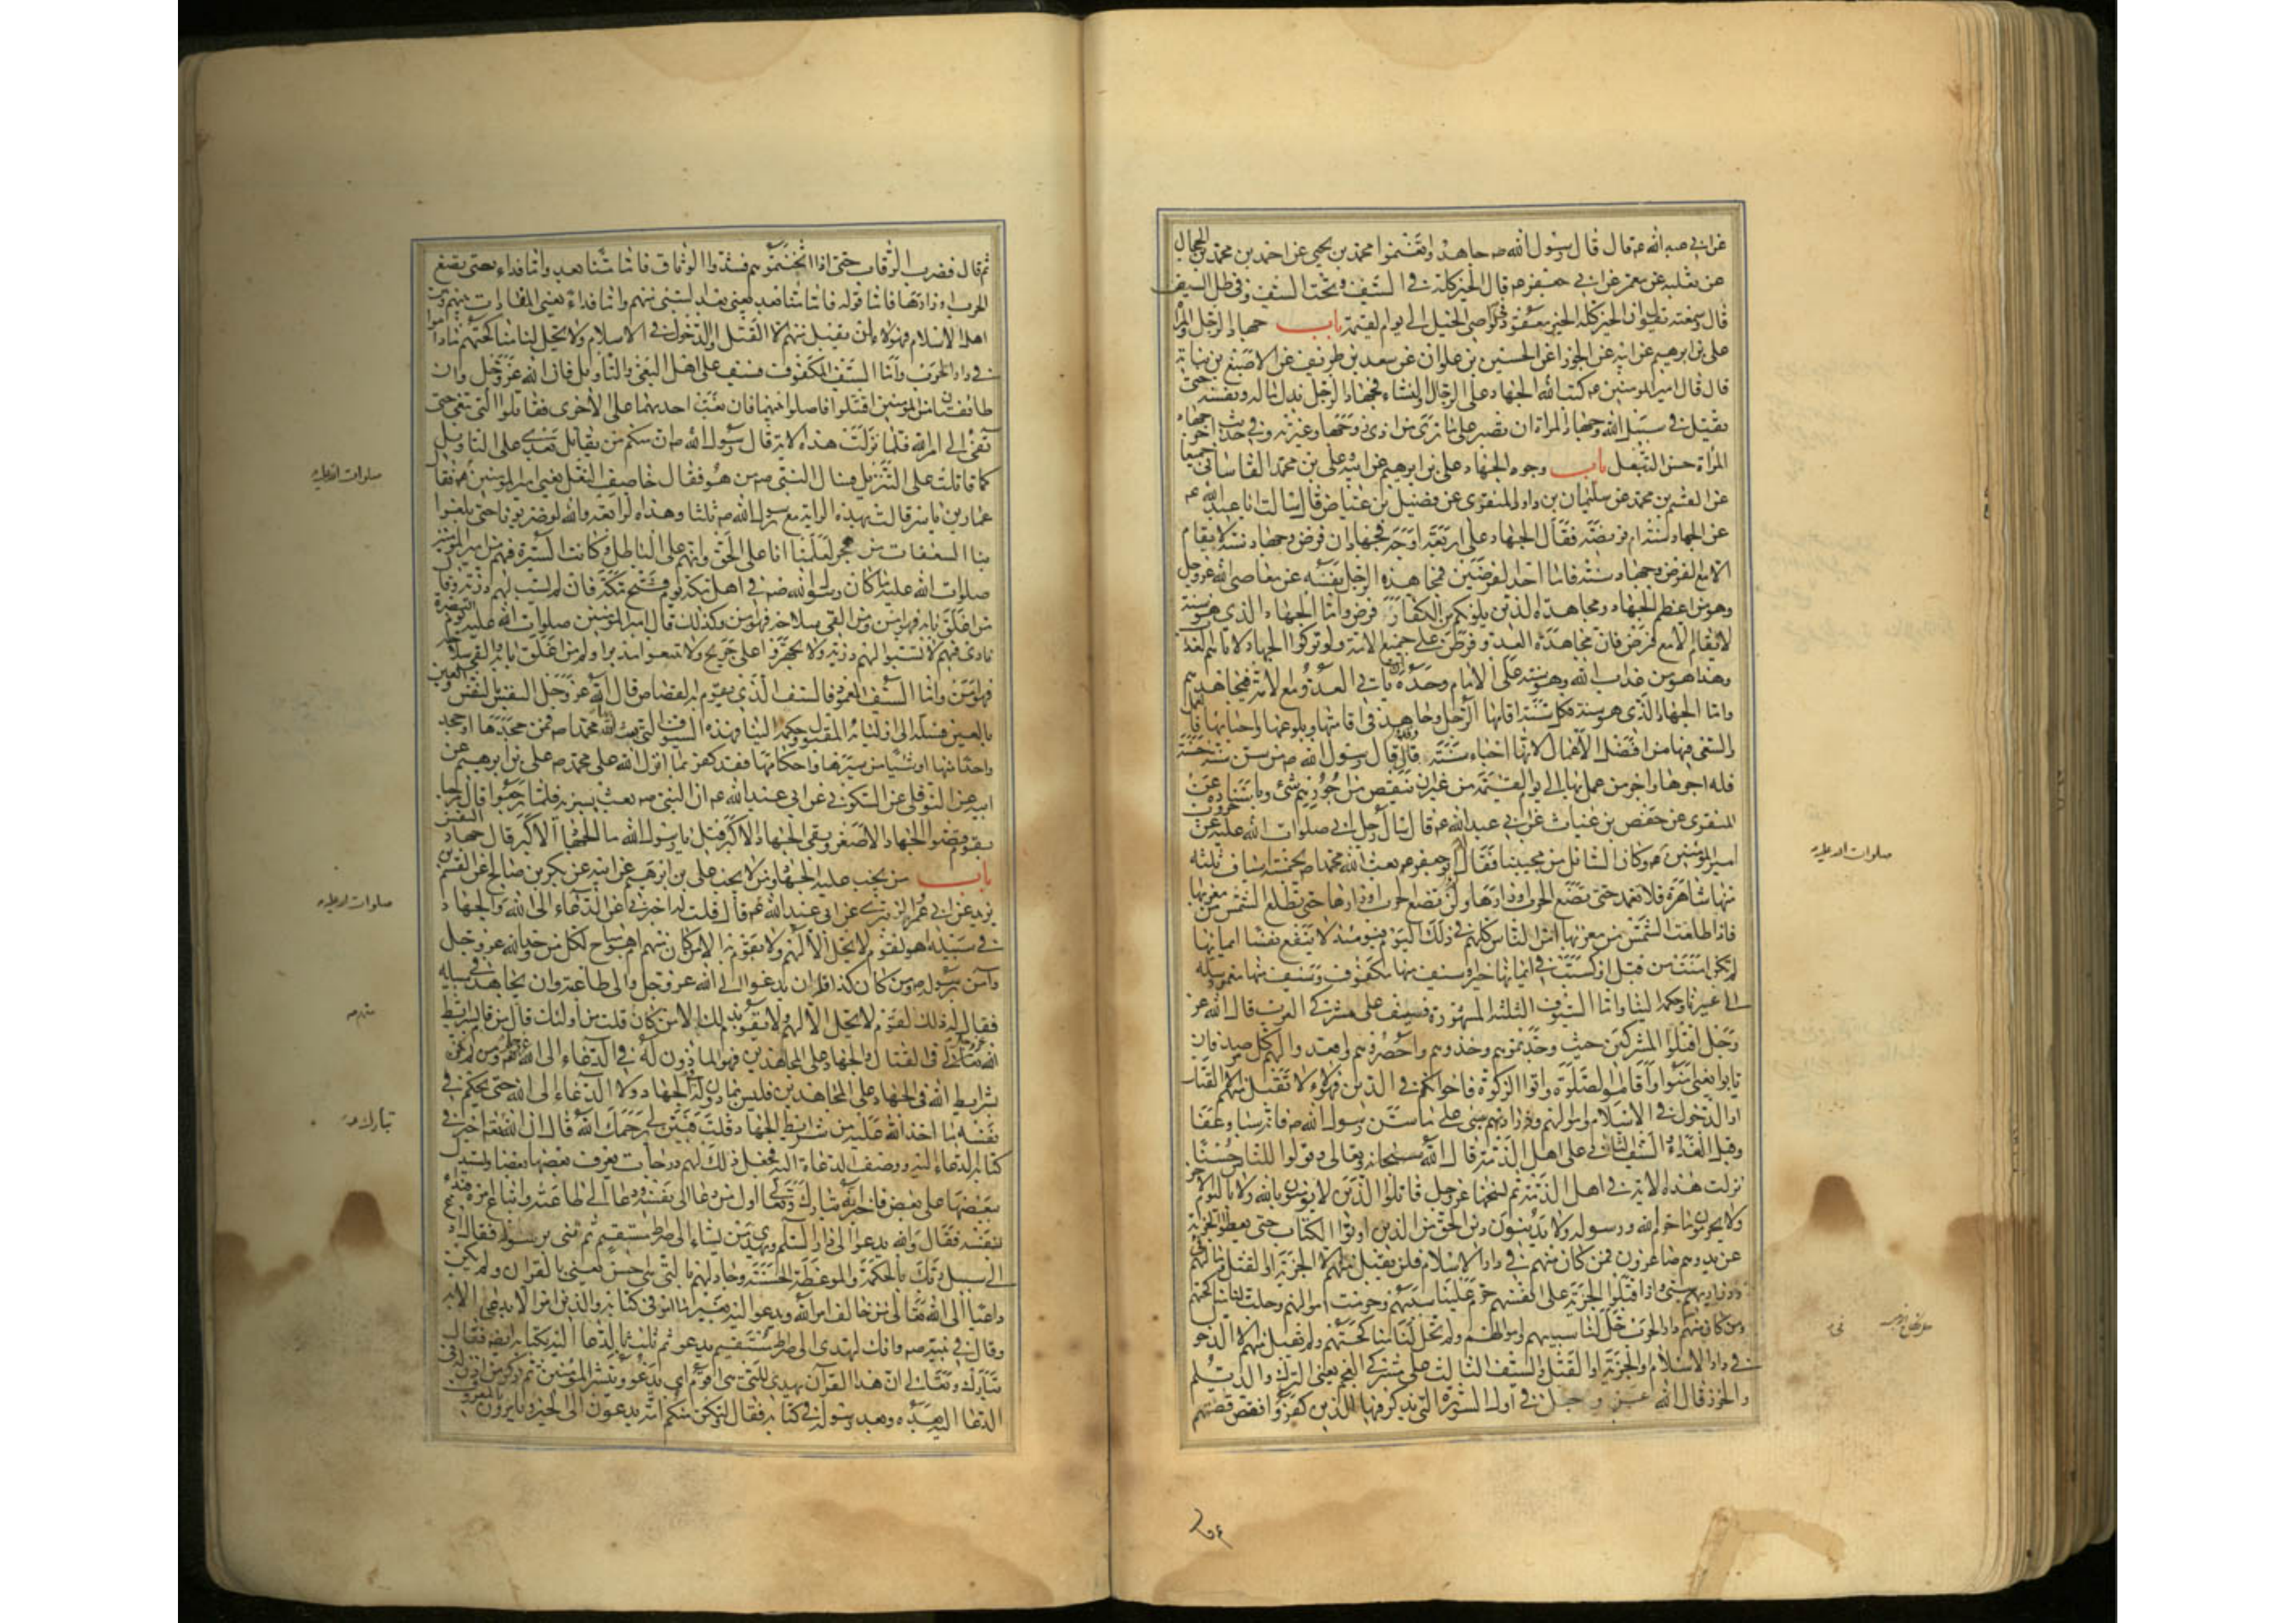 عن ابي عبد الله عم قال قال رسول الله صم جاهدوا تغنموا محمد بن يحيى عن احمد بن محمد عن الحجال
عن ثعلبه عن معمر عن ابي جعفر عم قال الخير كله في السيف وتحت السيف وفي ظل السيف
قال سمعته يقول ان الخير كل الخير معقود في نواصي الخيل الى يوم القيمة باب جهاد الرجل والمراة
علي بن ابرهيم عن ابيه عن ابي الجوزا عن الحسين بن علوان عن سعد بن طريف عن الاصبغ بن نباتة
قال قال امير المومنين عم كتب الله الجهاد على الرجال والنساء فجهاد الرجل بذل ماله ونفسه حتى
يقتل في سبيل الله وجهاد المراة ان تصبر على ما ترى من اذى زوجها وغيرته وفي حديث اخر جهاد
المراة حسن التبعل باب وجوه الجهاد علي بن ابرهيم عن ابيه وعلي بن محمد القاساني جميعا
عن القسم بن محمد عن سليمان بن داود المنقري عن فضيل بن عياض قال سالت ابا عبد الله عم
عن الجهاد اسنة ام فريضة فقال الجهاد على اربعة اوجه فجهادان فرض وجهاد سنة لا يقام
الا مع الفرض وجهاد سنة فاما احد الفرضين فمجاهدة الرجل نفسه عن معاصي الله عز وجل
وهو من اعظم الجهاد ومجاهدة الذين يلونكم من الكفار فرض واما الجهاد الذي هو سنة
لا يقام الا مع فرض فان مجاهدة العدو فرض على جميع الامة ولو تركوا الجهاد لاتاهم العذاب
وهذا هو من عذاب الله وهو سنة على الامام وحده ان ياتي العدو مع الامة فيجاهدهم
واما الجهاد الذي هو سنة فكل سنة اقامها الرجل وجاهد في اقامتها وبلوغها واحيائها فالعمل
والسعي فيها من افضل الاعمال لانها احياء سنة وقد قال رسول الله صم من سن سنة حسنة
فله اجرها واجر من عمل بها الى يوم القيمة من غير ان ينقص من اجورهم شئ وباسناده عن
المنقري عن حفص بن غياث عن ابي عبد الله عم قال سال رجل ابي صلوات الله عليه عن حروب
امير المومنين عم وكان السائل من محبينا فقال له ابو جعفر عم بعث الله محمدا صم بخمسة اسياف ثلثة
منها شاهرة فلا تغمد حتى تضع الحرب اوزارها ولن تضع الحرب اوزارها حتى تطلع الشمس من مغربها
فاذا طلعت الشمس من مغربها امن الناس كلهم في ذلك اليوم فيومئذ لا ينفع نفسا ايمانها
لم تكن امنت من قبل او كسبت في ايمانها خيرا وسيف منها مكفوف وسيف منها مغمود سله
الى غيرنا وحكمه الينا واما السيوف الثلثة المشهورة فسيف على مشركي العرب قال الله عز
وجل اقتلوا المشركين حيث وجدتموهم وخذوهم واحصروهم واقعدوا لهم كل مرصد فان
تابوا يعني امنوا واقاموا الصلوة واتوا الزكوة فاخوانكم في الدين فهؤلاء لا تقبل منهم الا القتل
او الدخول في الاسلام واموالهم وذراريهم سبي على ما سن رسول الله صم فانه سبا وعفا
وقبل الفداء والسيف الثاني على اهل الذمة قال الله سبحانه وتعالى وقولوا للناس حسنا
نزلت هذه الاية في اهل الذمة ثم نسخها عز وجل قاتلوا الذين لا يؤمنون بالله ولا باليوم الاخر
ولا يحرمون ما حرم الله ورسوله ولا يدينون دين الحق من الذين اوتوا الكتاب حتى يعطوا الجزية
عن يد وهم صاغرون فمن كان منهم في دار الاسلام فلن يقبل منهم الا الجزية او القتل ومالهم
وذراريهم سبي واذا قبلوا الجزية على انفسهم حرم علينا سبيهم وحرمت اموالهم وحلت لنا مناكحتهم
ومن كان منهم دار الحرب حل لنا سبيهم واموالهم ولم تحل لنا مناكحتهم ولم يقبل منهم الا الدخول
في دار الاسلام او الجزية او القتل والسيف الثالث على مشركي العجم يعني الترك والديلم
والخزر قال الله عز و جل في اول السورة التي يذكر فيها الذين كفروا فقص قصتهم
صلوات الله عليه
ثم قال فضرب الرقاب حتى اذا اثخنتموهم فشدوا الوثاق فاما منا بعد واما فداء حتى تضع
الحرب اوزارها فاما قوله فاما منا بعد يعني بعد السبي منهم واما فداء يعني المفادات بينهم وبين
اهل الاسلام فهؤلاء لن يقبل منهم الا القتل او الدخول في الاسلام ولا يحل لنا مناكحتهم ما داموا
في دار الحرب واما السيف المكفوف فسيف على اهل البغي والتاويل قال الله عز وجل وان
طائفتان من المومنين اقتتلوا فاصلحوا بينهما فان بغت احديهما على الاخرى فقاتلوا التي تبغي حتى
تفئ الى امر الله فلما نزلت هذه الاية قال رسول الله صم ان منكم من يقاتل بعدي على التاويل
كما قاتلت على التنزيل فسال النبي صم من هو فقال خاصف النعل يعني امير المومنين عم فقال
عمار بن ياسر قاتلت بهذه الراية مع رسول الله صم ثلثا وهذه الرابعة والله لو ضربونا حتى يبلغوا
بنا السعفات من هجر لعلمنا انا على الحق وانهم على الباطل وكانت السيرة فيهم من امير المومنين
صلوات الله عليه ما كان من رسول الله صم في اهل مكة يوم فتح مكة فانه لم يسب لهم ذرية وقال
من اغلق بابه فهو امن ومن القى سلاحه فهو امن وكذلك قال امير المومنين صلوات الله عليه يوم البصرة
نادى فيهم لا تسبوا لهم ذرية ولا تجهزوا على جريح ولا تتبعوا مدبرا ومن اغلق بابه والقى سلاحه
فهو امن واما السيف المغمود فالسيف الذي يقوم به القصاص قال الله عز وجل النفس بالنفس والعين
بالعين فسله الى اولياء المقتول وحكمه الينا فهذه السيوف التي بعث الله محمدا صم فمن جحدها او جحد
واحدا منها او شيئا من سيرها واحكامها فقد كفر بما انزل الله على محمد صم علي بن ابرهيم عن
ابيه عن النوفلي عن السكوني عن ابي عبد الله عم ان النبي صم بعث بسرية فلما رجعوا قال مرحبا
بقوم قضوا الجهاد الاصغر وبقي الجهاد الاكبر قيل يا رسول الله ما الجهاد الاكبر قال جهاد النفس
باب من يجب عليه الجهاد ومن لا يجب علي بن ابرهيم عن ابيه عن بكر بن صالح عن القسم بن
بريد عن ابي عمرو الزبيري عن ابي عبد الله عم قال قلت له اخبرني عن الدعاء الى الله والجهاد
في سبيله اهو لقوم لا يحل الا لهم ولا يقوم به الا من كان منهم ام هو مباح لكل من وحد الله عز وجل
وآمن برسوله صم ومن كان كذا فله ان يدعو الى الله عز وجل والى طاعته وان يجاهد في سبيله
فقال ذلك لقوم لا يحل الا لهم ولا يقوم بذلك الا من كان منهم قلت من اولئك قال من قام بشرايط
الله تعالى في القتال والجهاد على المجاهدين فهو الماذون له في الدعاء الى الله عز وجل ومن لم يكن
بشرايط الله في الجهاد على المجاهدين فليس بماذون له في الجهاد ولا الدعاء الى الله حتى يحكم في
نفسه ما اخذ الله عليه من شرايط الجهاد قلت فبين لي رحمك الله قال ان الله تعالى اخبر في
كتابه الدعاء اليه ووصف الدعاة اليه فجعل ذلك لهم درجات يعرف بعضها بعضا ويستدل
ببعضها على بعض فاخبر انه تبارك وتعالى اول من دعا الى نفسه ودعا الى طاعته واتباع امره فبدء
بنفسه فقال والله يدعو الى دار السلم ويهدي من يشاء الى صراط مستقيم ثم ثنى برسوله فقال ادع
الى سبيل ربك بالحكمة والموعظة الحسنة وجادلهم بالتي هي احسن يعني بالقران ولم يكن
داعيا الى الله تعالى من خالف امر الله ويدعو اليه بغير ما امر في كتابه والذي امر الا يدعى الا به
وقال في نبيه صم وانك لتهدي الى صراط مستقيم يدعو ثم ثلث بالدعاء اليه بكتابه ايضا فقال
تبارك وتعالى ان هذا القرآن يهدي للتي هي اقوم اي يدعو ويبشر المؤمنين ثم ذكر من اذن له في
الدعا اليه بعده وبعد رسوله في كتابه فقال ولتكن منكم امة يدعون الى الخير ويامرون بالمعروف
صلوات الله عليه
صلوات الله عليه